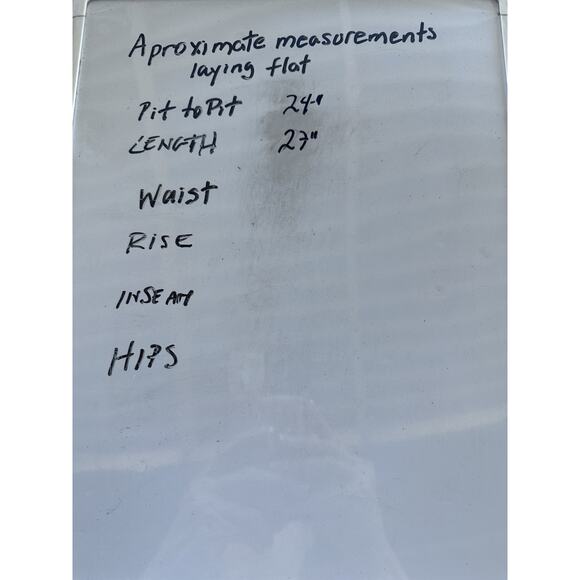 Aproximate measurements
laying flat
Pit to Pit 24"
LENGTH 27"
Waist
RISE
INSEAM
HIPS